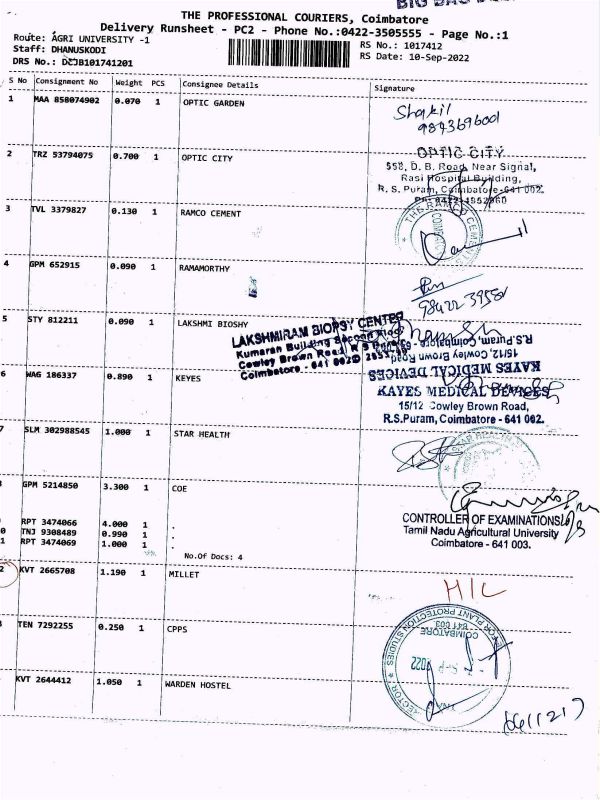 BIG BAG
THE PROFESSIONAL COURIERS, Coimbatore
Delivery Runsheet - PC2 - Phone No.:0422-3505555 - Page No.:1
Route: AGRI UNIVERSITY -1
RS No.: 1017412
Staff: DHANUSKODI
RS Date: 10-Sep-2022
DRS No.: DCJB101741201
S No Consignment No Weight PCS Consignee Details Signature
1 MAA 858074902 0.070 1 OPTIC GARDEN
Shakil
9843696001
2 TRZ 53794075 0.700 1 OPTIC CITY
OPTIC CITY
558, D. B. Road, Near Signal,
Rasi Hospital Building,
R. S. Puram, Coimbatore-641 002.
3 TVL 3379827 0.130 1 RAMCO CEMENT
THE RAMCO CEMENTS
4 GPM 652915 0.090 1 RAMAMORTHY
5 STY 812211 0.090 1 LAKSHMI BIOSHY
LAKSHMIRAM BIOPSY CENTER
Kumaran Building Second Floor
Cowley Brown Road, R S Puram
Coimbatore - 641 002
KAYES MEDICAL DEVICES
15/12, Cowley Brown Road,
R.S.Puram, Coimbatore - 641 002.
6 WAG 186337 0.890 1 KEYES
KAYES MEDICAL DEVICES
15/12 Cowley Brown Road,
R.S.Puram, Coimbatore - 641 002.
7 SLM 302988545 1.000 1 STAR HEALTH
STAR HEALTH
GPM 5214850 3.300 1 COE
CONTROLLER OF EXAMINATIONS
Tamil Nadu Agricultural University
Coimbatore - 641 003.
RPT 3474066 4.000 1 .
0 TNJ 9308489 0.990 1 .
1 RPT 3474069 1.000 1 .
No.Of Docs: 4
2 KVT 2665708 1.190 1 MILLET
H/C
TEN 7292255 0.250 1 CPPS
FOR PLANT PROTECTION STUDIES
COIMBATORE
641 003
SEP 2022
KVT 2644412 1.050 1 WARDEN HOSTEL